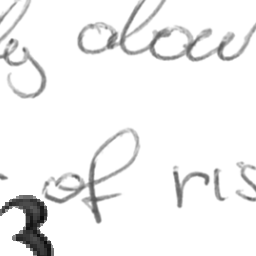 ly alow
of ris
3